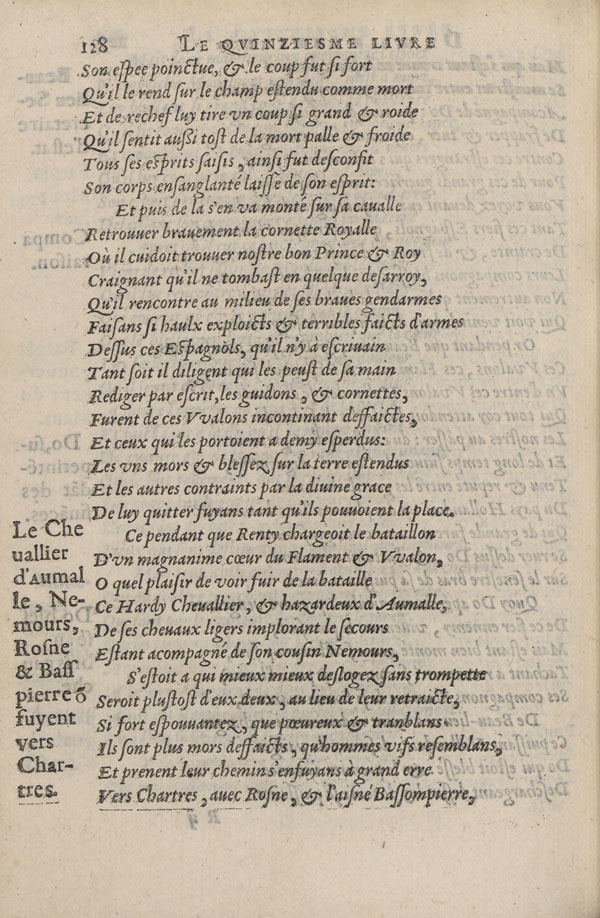 128 LE QVINZIESME LIVRE
Son espee poinctue, & le coup fut si fort
Qu'il le rend sur le champ estendu comme mort
Et de rechef luy tire vn coup si grand & roide
Qu'il sentit aussi tost de la mort palle & froide
Tous ses esprits saisis, ainsi fut desconfit
Son corps ensanglanté laisse de son esprit:
Et puis de la s'en va monté sur sa cavalle
Retrouuer brauement la cornette Royalle
Où il cuidoit trouuer nostre bon Prince & Roy
Craignant qu'il ne tombast en quelque desarroy,
Qu'il rencontre au milieu de ses braues gendarmes
Faisans si haulx exploicts & terribles faicts d'armes
Dessus ces Espagnols, qu'il n'y à escriuain
Tant soit il diligent qui les peust de sa main
Rediger par escrit, les guidons, & cornettes,
Furent de ces Vvalons incontinant deffaictes,
Et ceux qui les portoient a demy esperdus:
Les vns mors & blessez sur la terre estendus
Et les autres contraints par la diuine grace
De luy quitter fuyans tant qu'ils pouuoient la place.
Ce pendant que Renty chargeoit le bataillon
D'vn magnanime cœur du Flament & Vvalon,
O quel plaisir de voir fuir de la bataille
Ce Hardy Cheuallier, & hazardeux d'Aumalle,
De ses cheuaux ligers implorant le secours
Estant acompagné de son cousin Nemours,
S'estoit a qui mieux mieux deslogez sans trompette
Seroit plustost d'eux deux, au lieu de leur retraicte,
Si fort espouuantez, que pœureux & tranblans
Ils sont plus mors deffaicts, qu'hommes vifs resemblans,
Et prenent leur chemin s'enfuyans à grand erre
Vers Chartres, avec Rosne, & l'aisné Bassompierre,
Le Che
uallier
d'Aumal
le, Ne-
mours,
Rosne
& Bass
pierre õ
fuyent
vers
Char-
tres.